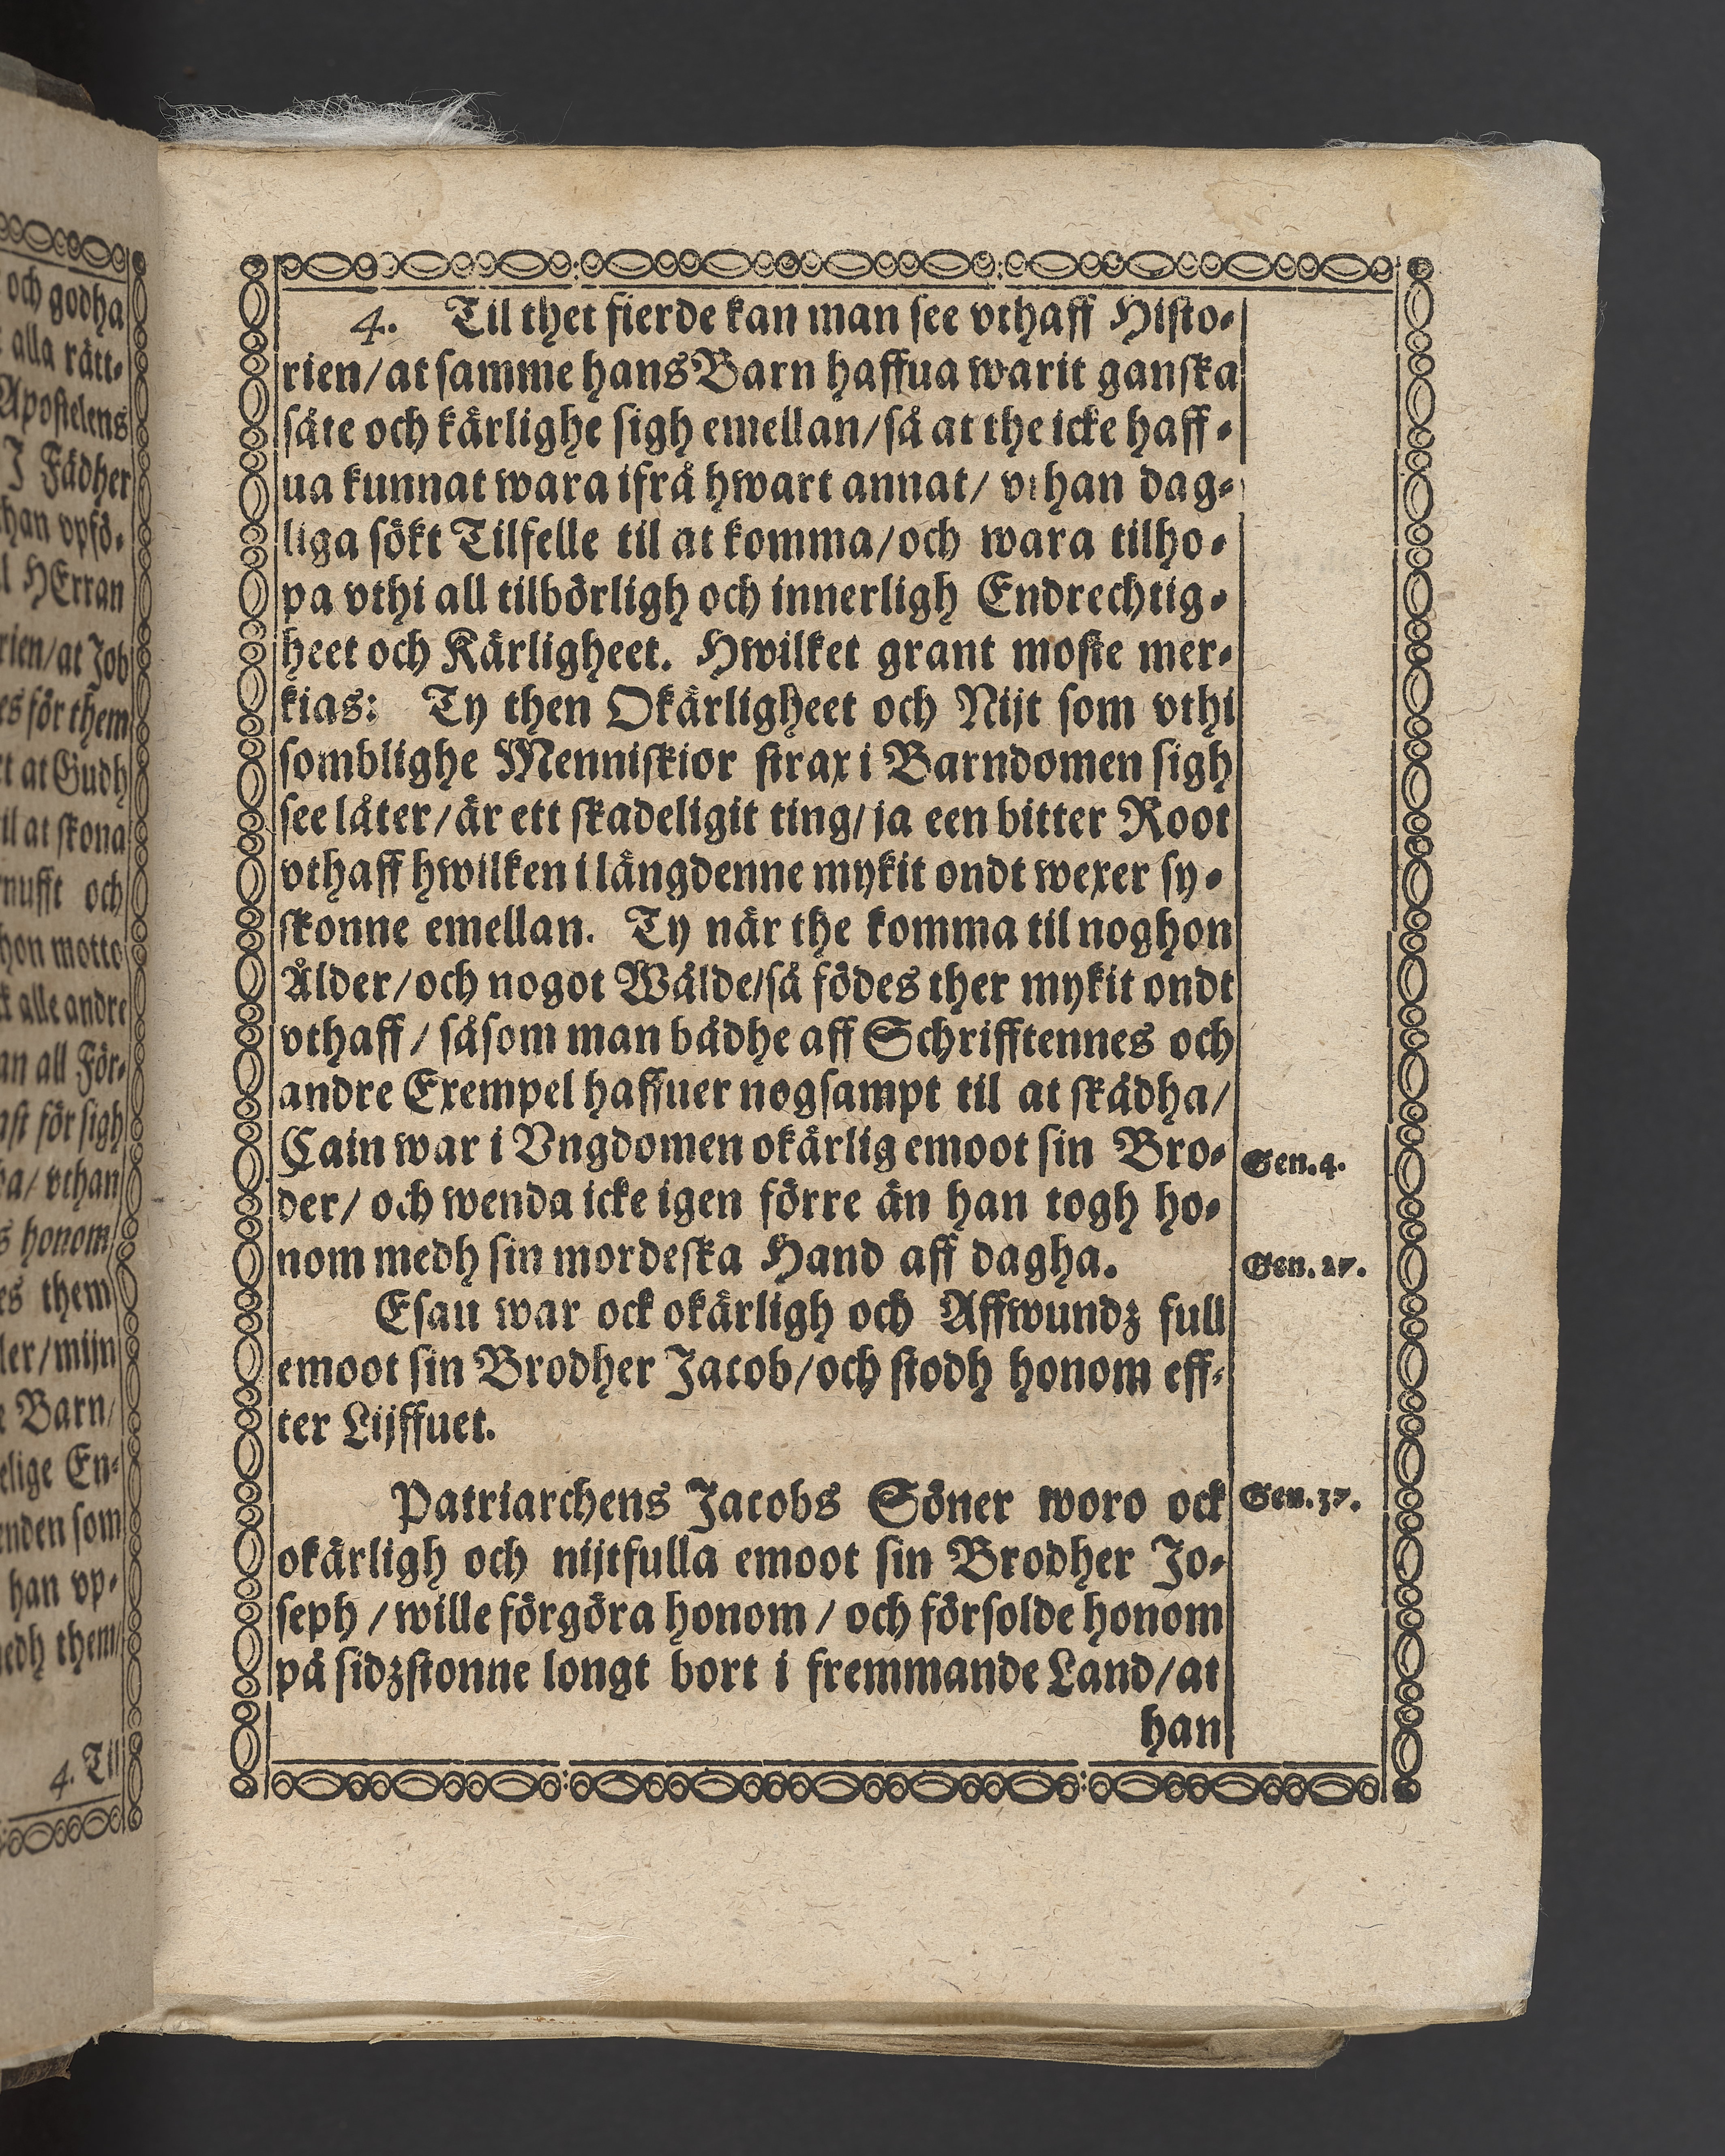 och godha
alla rätt-
Apostelens
J Fädher
han vpfö-
HErran
rien/at Job
es för them
at at Gudh
il at skona
nufft och
hon motte
alle andre
an all För-
för sigh
/ vthan
honom/
es them
ler/mijn
Barn/
elige En-
enden som
han vp-
medh them/
4. Til
4. Til thet fierde kan man see vthaff Histo-
rien/at samme hans Barn haffua warit ganska
säte och kärlighe sigh emellan/så at the icke haff-
ua kunnat wara ifrå hwart annat/ vthan dag-
liga sökt Tilfelle til at komma/och wara tilho-
pa vthi all tilbörligh och innerligh Endrechtig-
heet och Kärligheet. Hwilket grant moste mer-
kias: Ty then Okärligheet och Nijt som vthi
somblighe Menniskior strax i Barndomen sigh
see låter/är ett skadeligit ting/ja een bitter Root
vthaff hwilken i längdenne mykit ondt wexer sy-
skonne emellan. Ty när the komma til noghon
Ålder/och nogot Wälde/så födes ther mykit ondt
vthaff/såsom man bådhe aff Schrifftennes och
andre Exempel haffuer nogsampt til at skådha/
Cain war i Vngdomen okärlig emoot sin Bro-
Gen.4.
der/och wenda icke igen förre än han togh ho-
nom medh sin mordeska Hand aff dagha.
Gen.27.
Esau war ock okärligh och Affwundz full
emoot sin Brodher Jacob/och stodh honom eff-
ter Lijffuet.
Patriarchens Jacobs Söner woro ock
Gen.37.
okärligh och nijtfulla emoot sin Brodher Jo-
seph/wille förgöra honom/och försolde honom
på sidzstonne longt bort i fremmande Land/at
han